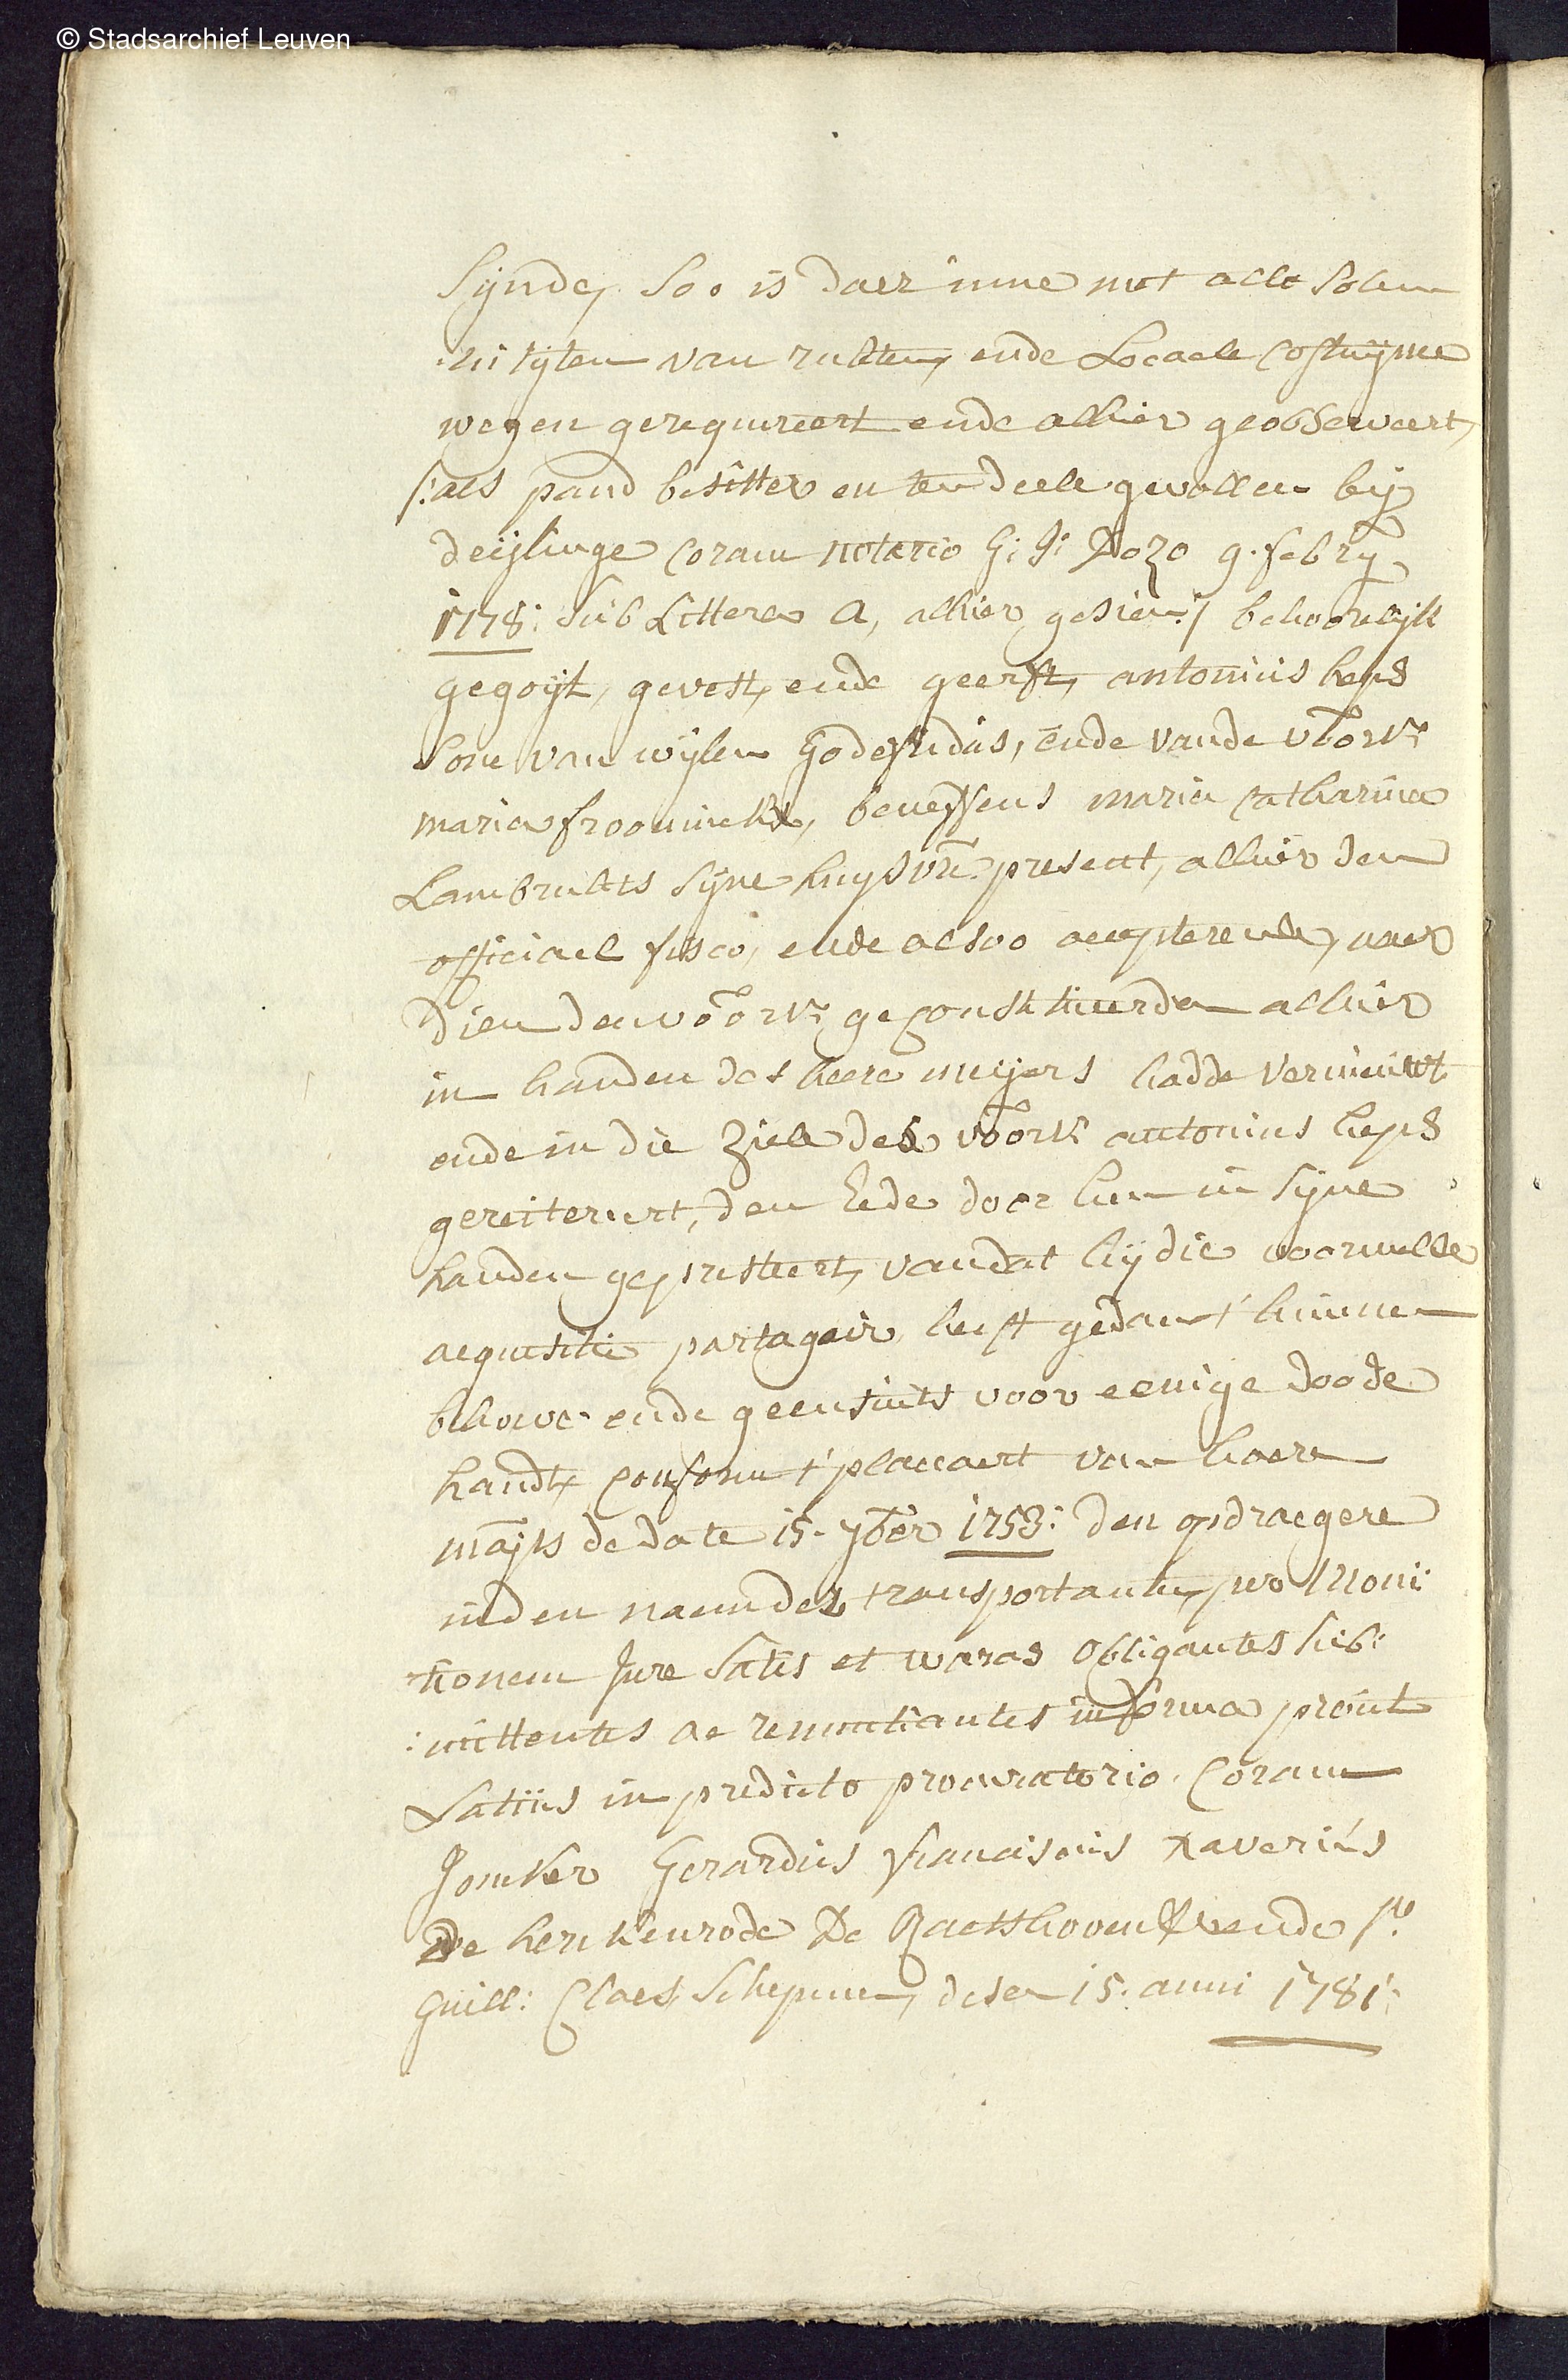 © Stadsarchief Leuven
Sijnde, Soo is daer inne met alle Solem
:niteijten van rechten, ende Locaele Costuijme
wegen gerequireert ende alhier geobserveert,
/:als pand besitter en ten deele gevallen bij
deijlinge Coram notario G: J: Dozo 9. febrij
1778: Sub Littera A, alhier gesien:/ behoorelijk
gegoijt, gevest, ende geerft, antonius heps
Sone van wijlen Godefridus, ende vande voorz:
maria froonincks, beneffens maria Catharina
Lambrechts Sijne huijsvr: present, alhier den
officiael fisco, ende alsoo accepterende, naer
dien den voorz: geconstitueerden alhier
in handen des heere meijers hadde vernieuwt
ende in die Ziele des voorz: antonius heps
gereitereert, den Eede door hem in Sijne
handen gepresteert, van dat hij die voormelde
acquisitie partageir heeft gedaen t'hunnen
behoeve ende geensints voor eenige doode
handt, Conform t'placcaert van haere
maijts de date 15. 7ber 1753: den opdraegere
in den naem der transportante, pro Moni:
:tionem Jure Satis et waras Obligantes Sub:
:mittentes ac renuntiantes in forma prout
Latius in predicto procuratorio. Coram
Jonker Gerardus franciscus Xaverius
De herckenrode De Raetshoven ende
Guill: Claes Schepenen, desen 15. anni 1781: